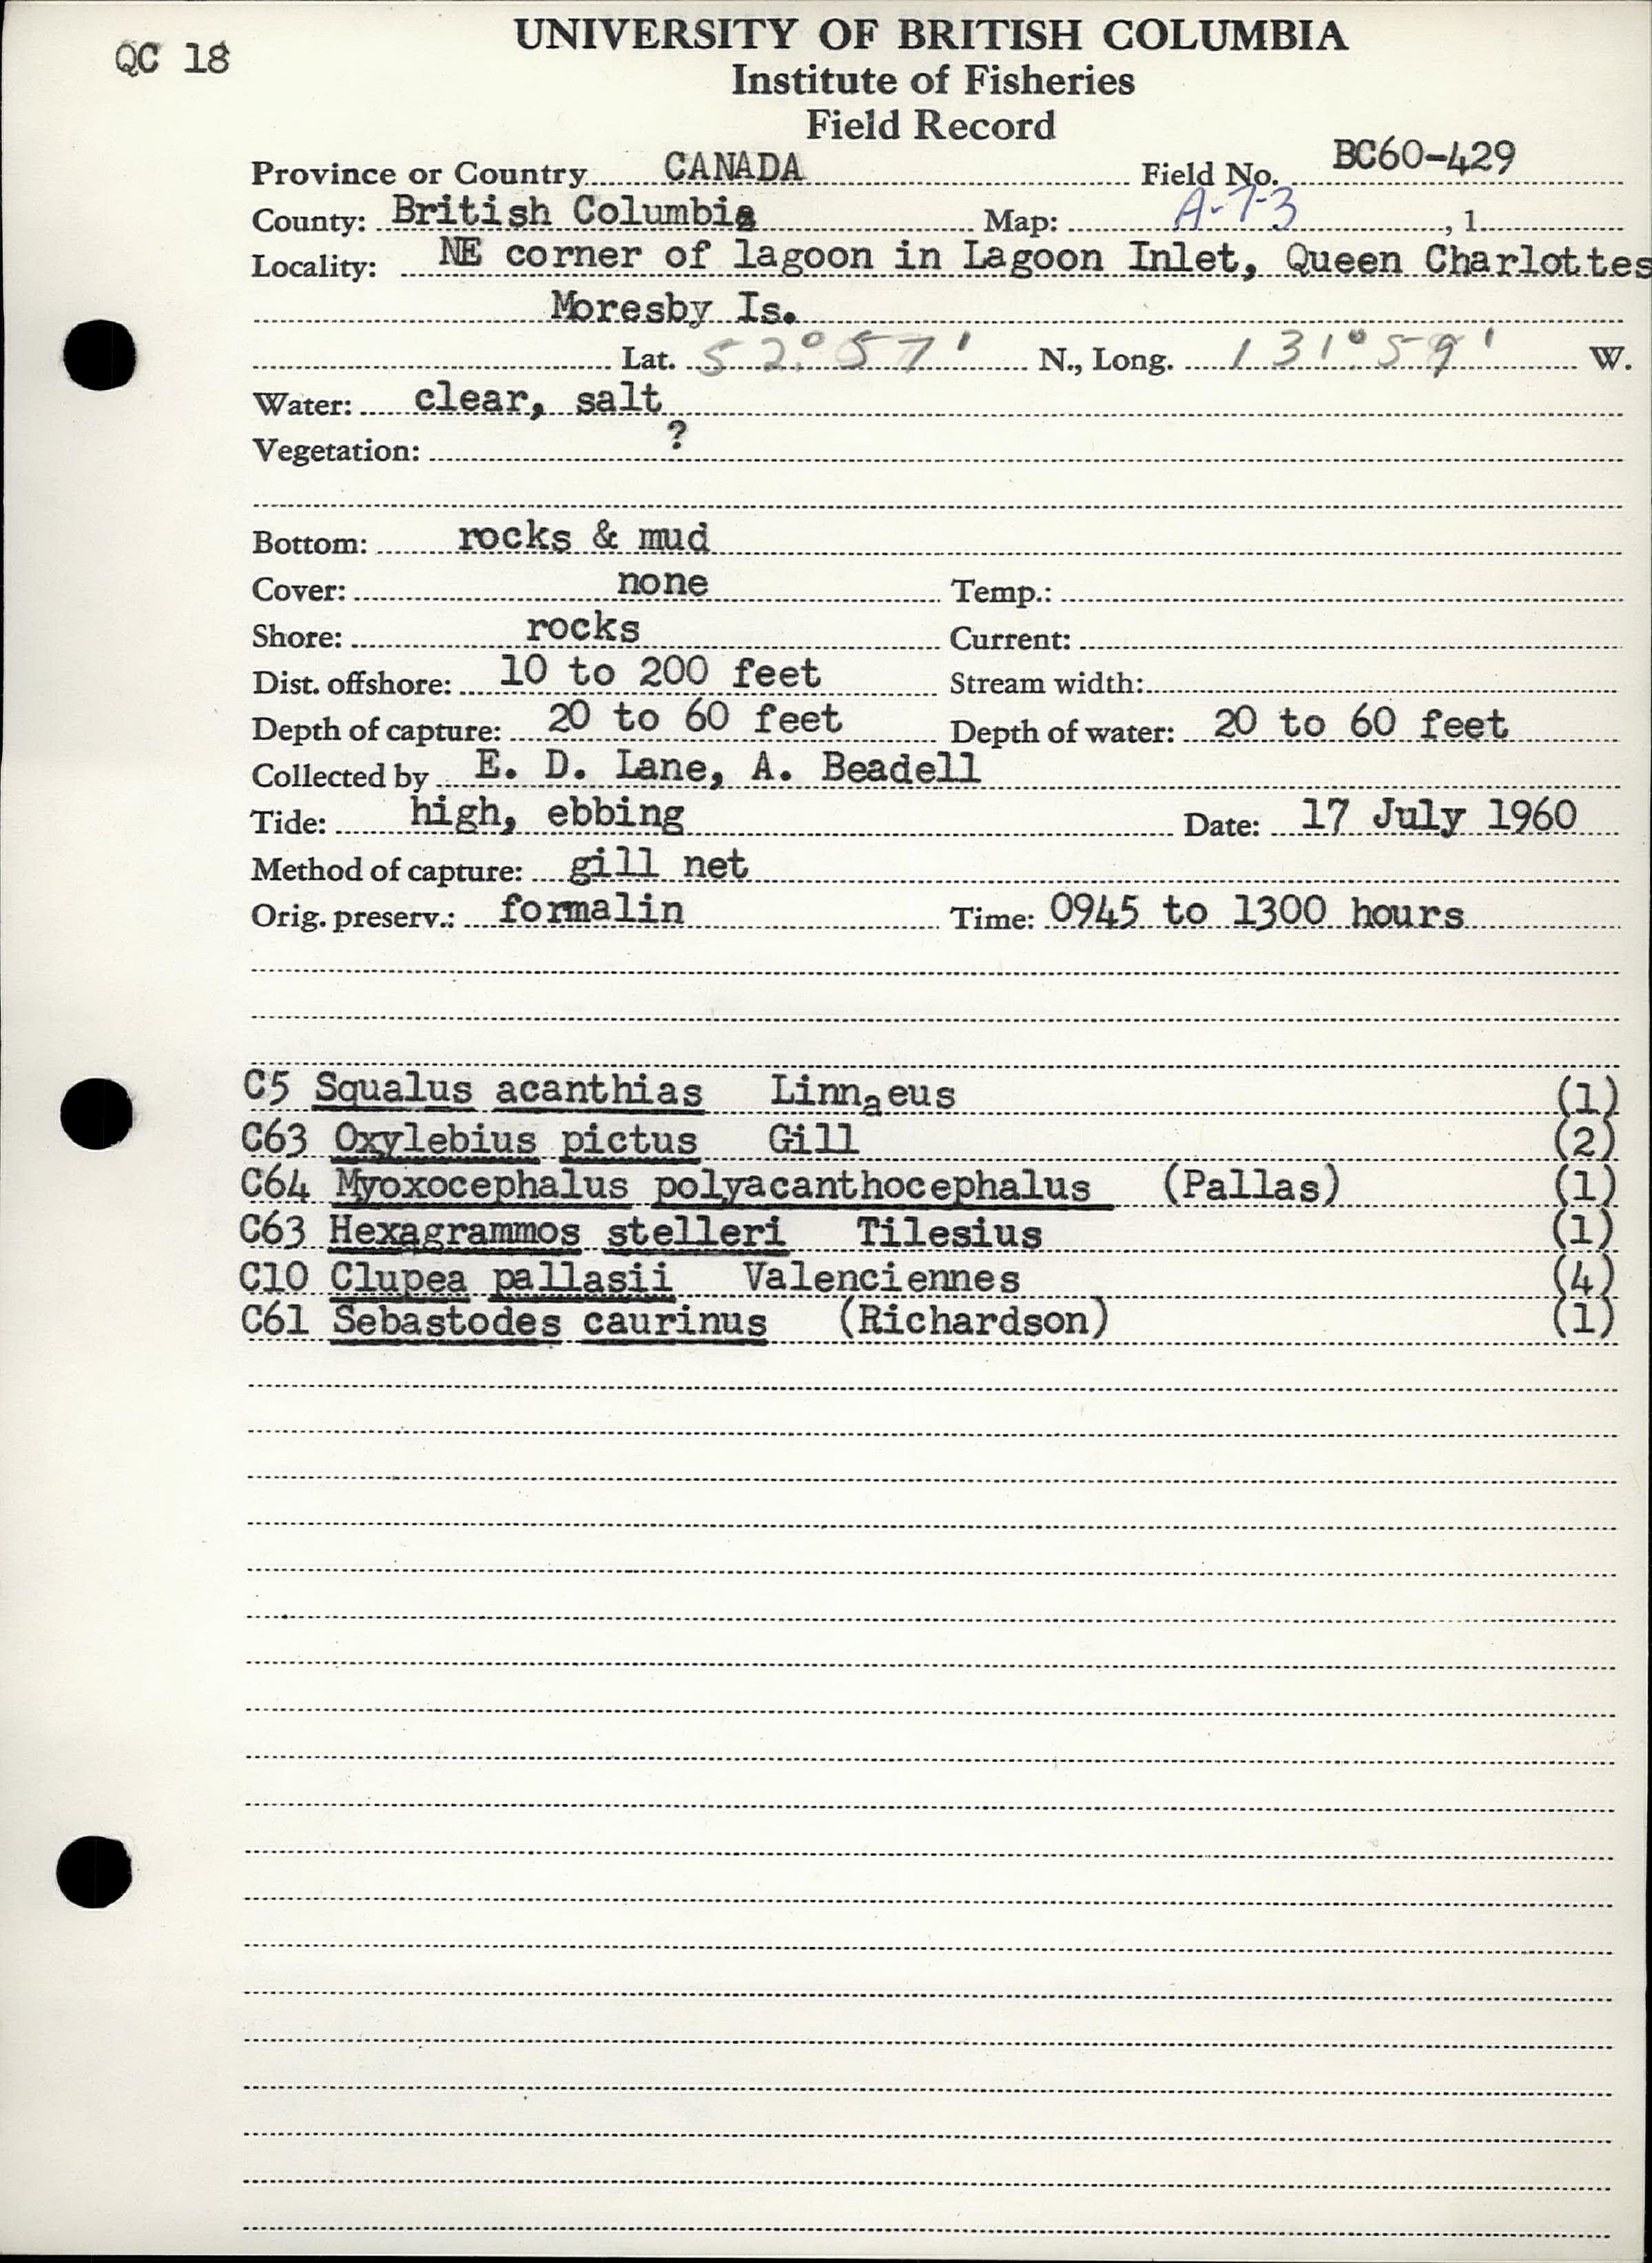 QC 18
UNIVERSITY OF BRITISH COLUMBIA
Institute of Fisheries
Field Record
Province or Country CANADA Field No. BC60-429
County: British Columbia Map: A-7-3, 1
Locality: NE corner of lagoon in Lagoon Inlet, Queen Charlottes
Moresby Is.
Lat. 52° 57' N., Long. 131° 59' W.
Water: clear, salt
Vegetation: ?
Bottom: rocks & mud
Cover: none Temp.:
Shore: rocks Current:
Dist. offshore: 10 to 200 feet Stream width:
Depth of capture: 20 to 60 feet Depth of water: 20 to 60 feet
Collected by E. D. Lane, A. Beadell
Tide: high, ebbing Date: 17 July 1960
Method of capture: gill net
Orig. preserv.: formalin Time: 0945 to 1300 hours
C5 Squalus acanthias Linnaeus (1)
C63 Oxylebius pictus Gill (2)
C64 Myoxocephalus polyacanthocephalus (Pallas) (1)
C63 Hexagrammos stelleri Tilesius (1)
C10 Clupea pallasii Valenciennes (4)
C61 Sebastodes caurinus (Richardson) (1)